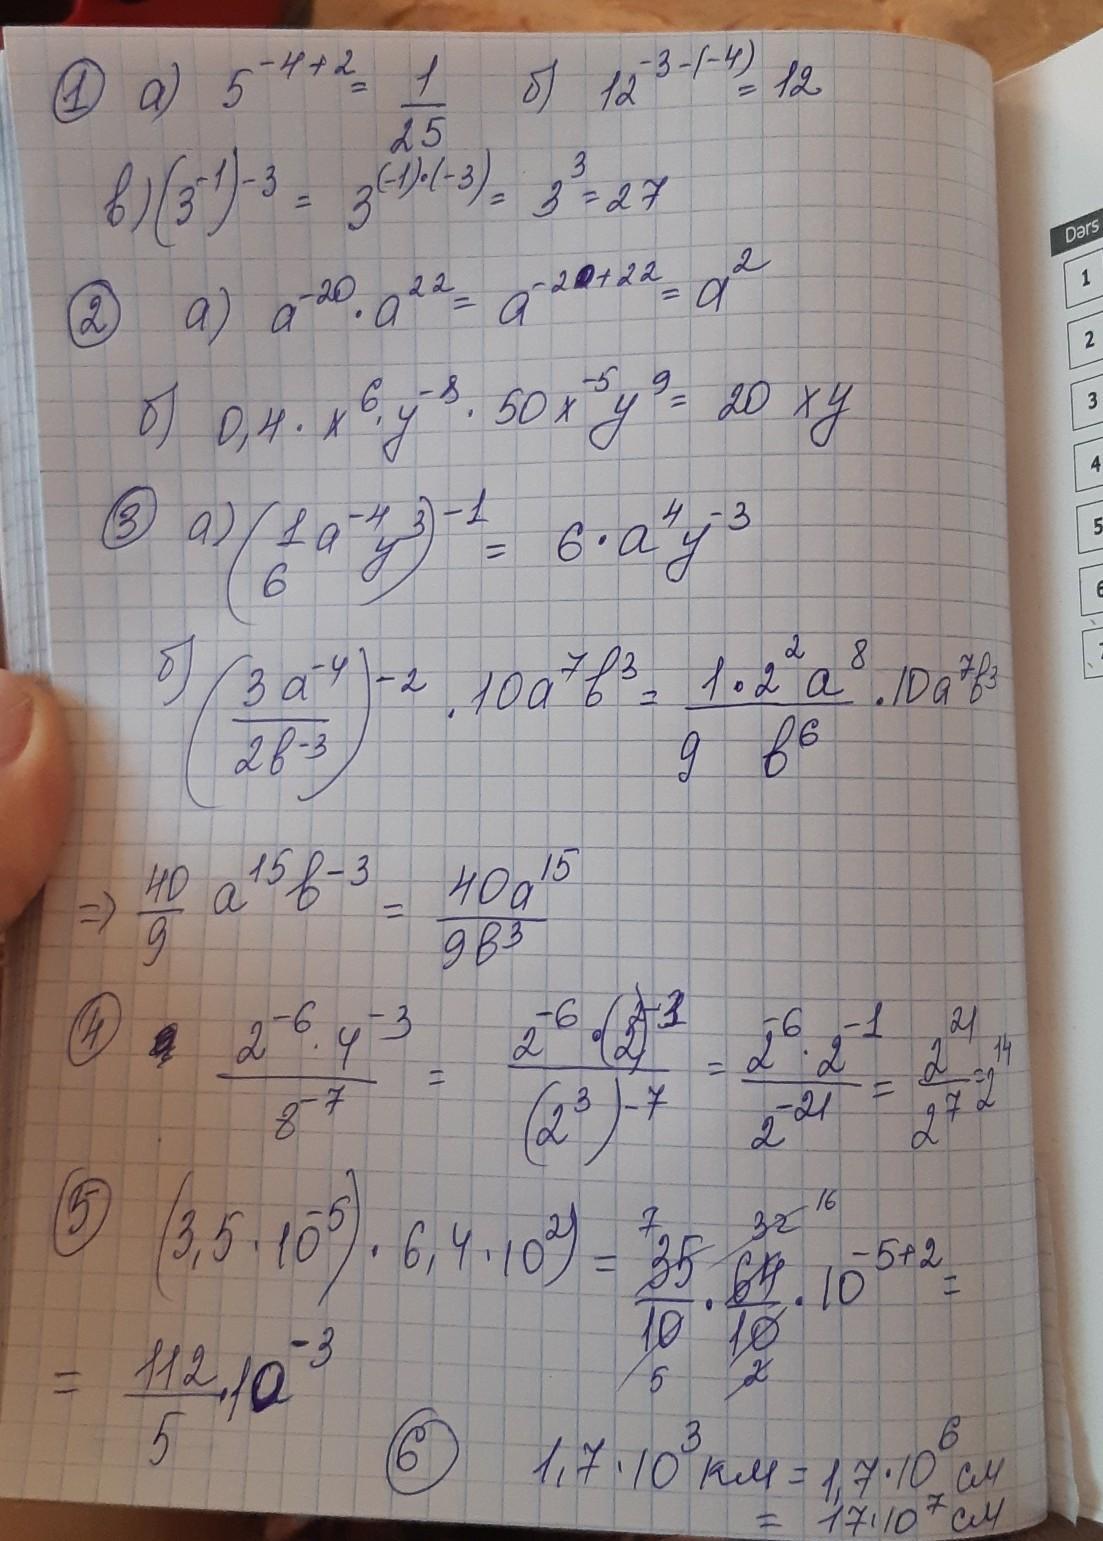 ① а) 5^{-4+2} = 1/25 б) 12^{-3-(-4)} = 12
в) (3^{-1})^{-3} = 3^{(-1)·(-3)} = 3^3 = 27
② а) a^{-20} · a^{22} = a^{-20+22} = a^2
б) 0,4 · x^6 · y^{-8} · 50x^{-5}y^9 = 20 xy
③ а) (1/6 a^{-4} y^3)^{-1} = 6 · a^4 y^{-3}
б) (3a^{-4}/2b^{-3})^{-2} · 10a^7b^3 = 1·2^2 a^8/9 b^6 · 10a^7b^3
=> 40/9 a^{15}b^{-3} = 40a^{15}/9b^3
④ 2^{-6} · 4^{-3}/8^{-7} = 2^{-6} · (2)^{-1}/(2^3)^{-7} = 2^{-6} · 2^{-1}/2^{-21} = 2^{21}/2^7 = 2^{14}
⑤ (3,5 · 10^{-5}) · 6,4 · 10^2) = 35/10 · 64/10 · 10^{-5+2} =
7 32 16
5 2
= 112/5 · 10^{-3}
⑥ 1,7 · 10^3 км = 1,7 · 10^6 см
= 17·10^7 см
Dərs
1
2
3
4
5
6